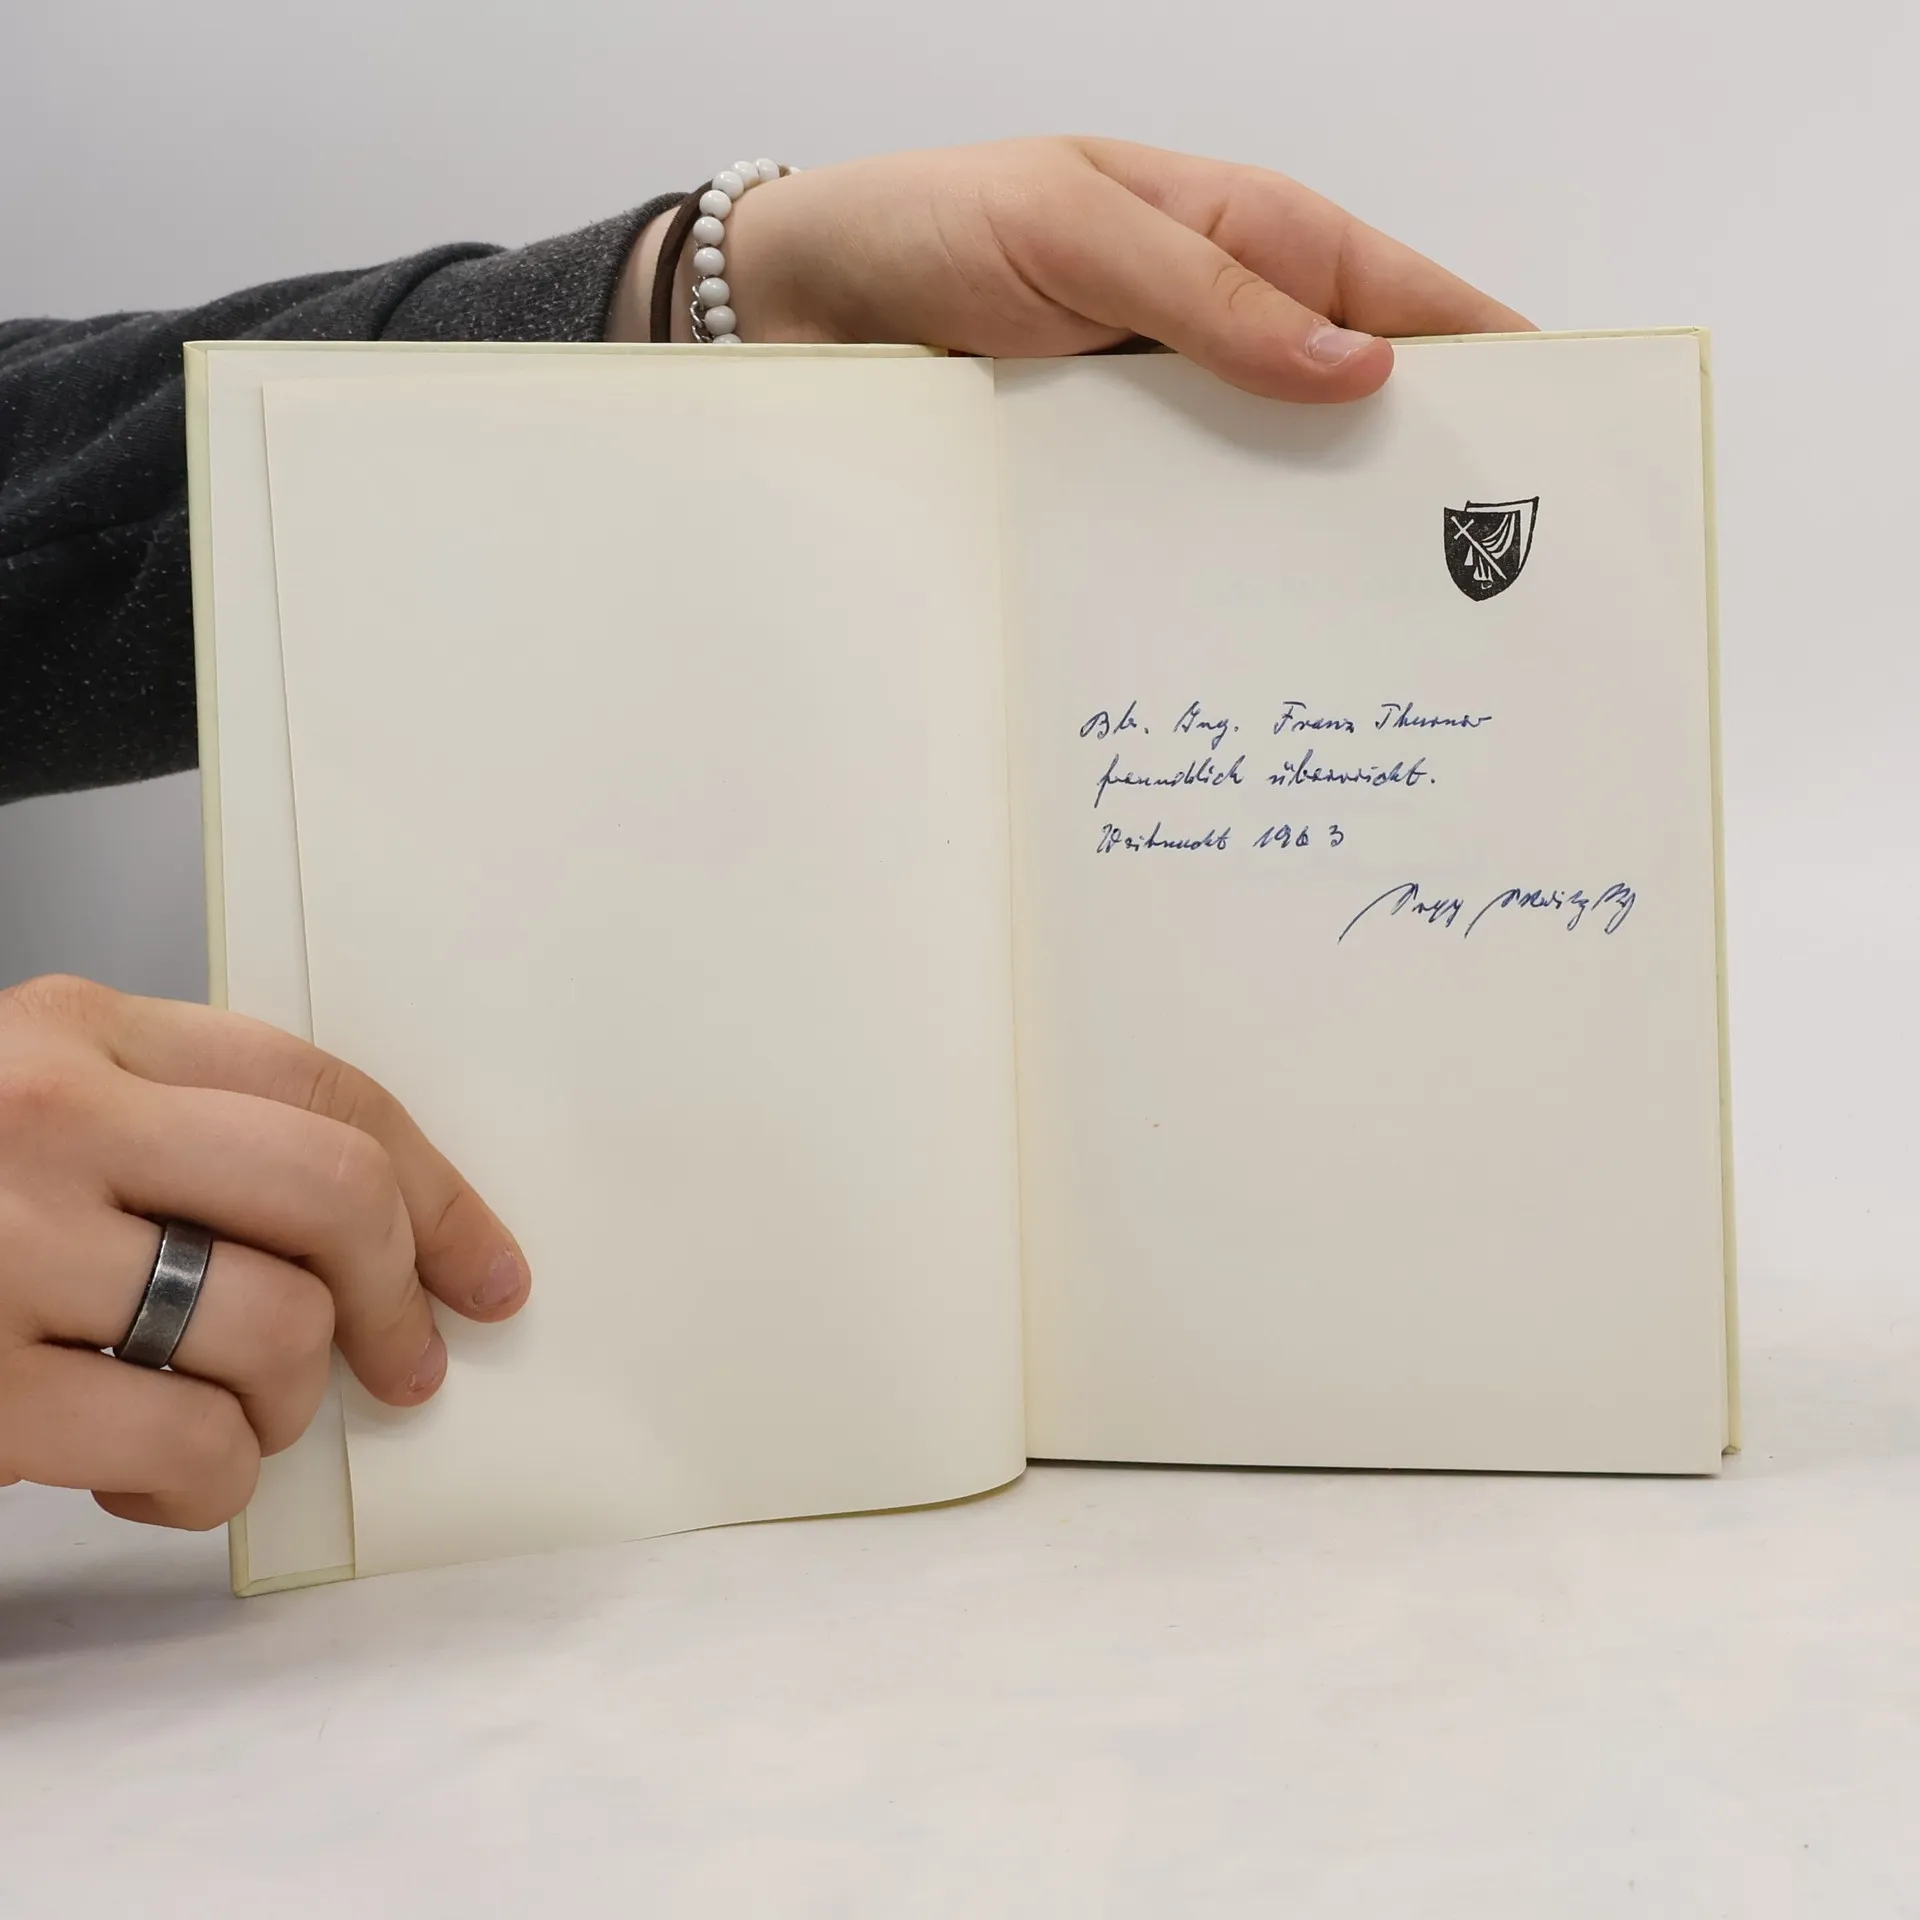 Bbr. Ing. Franz Thurner
freundlich überreicht.
Weihnacht 1963
Sepp